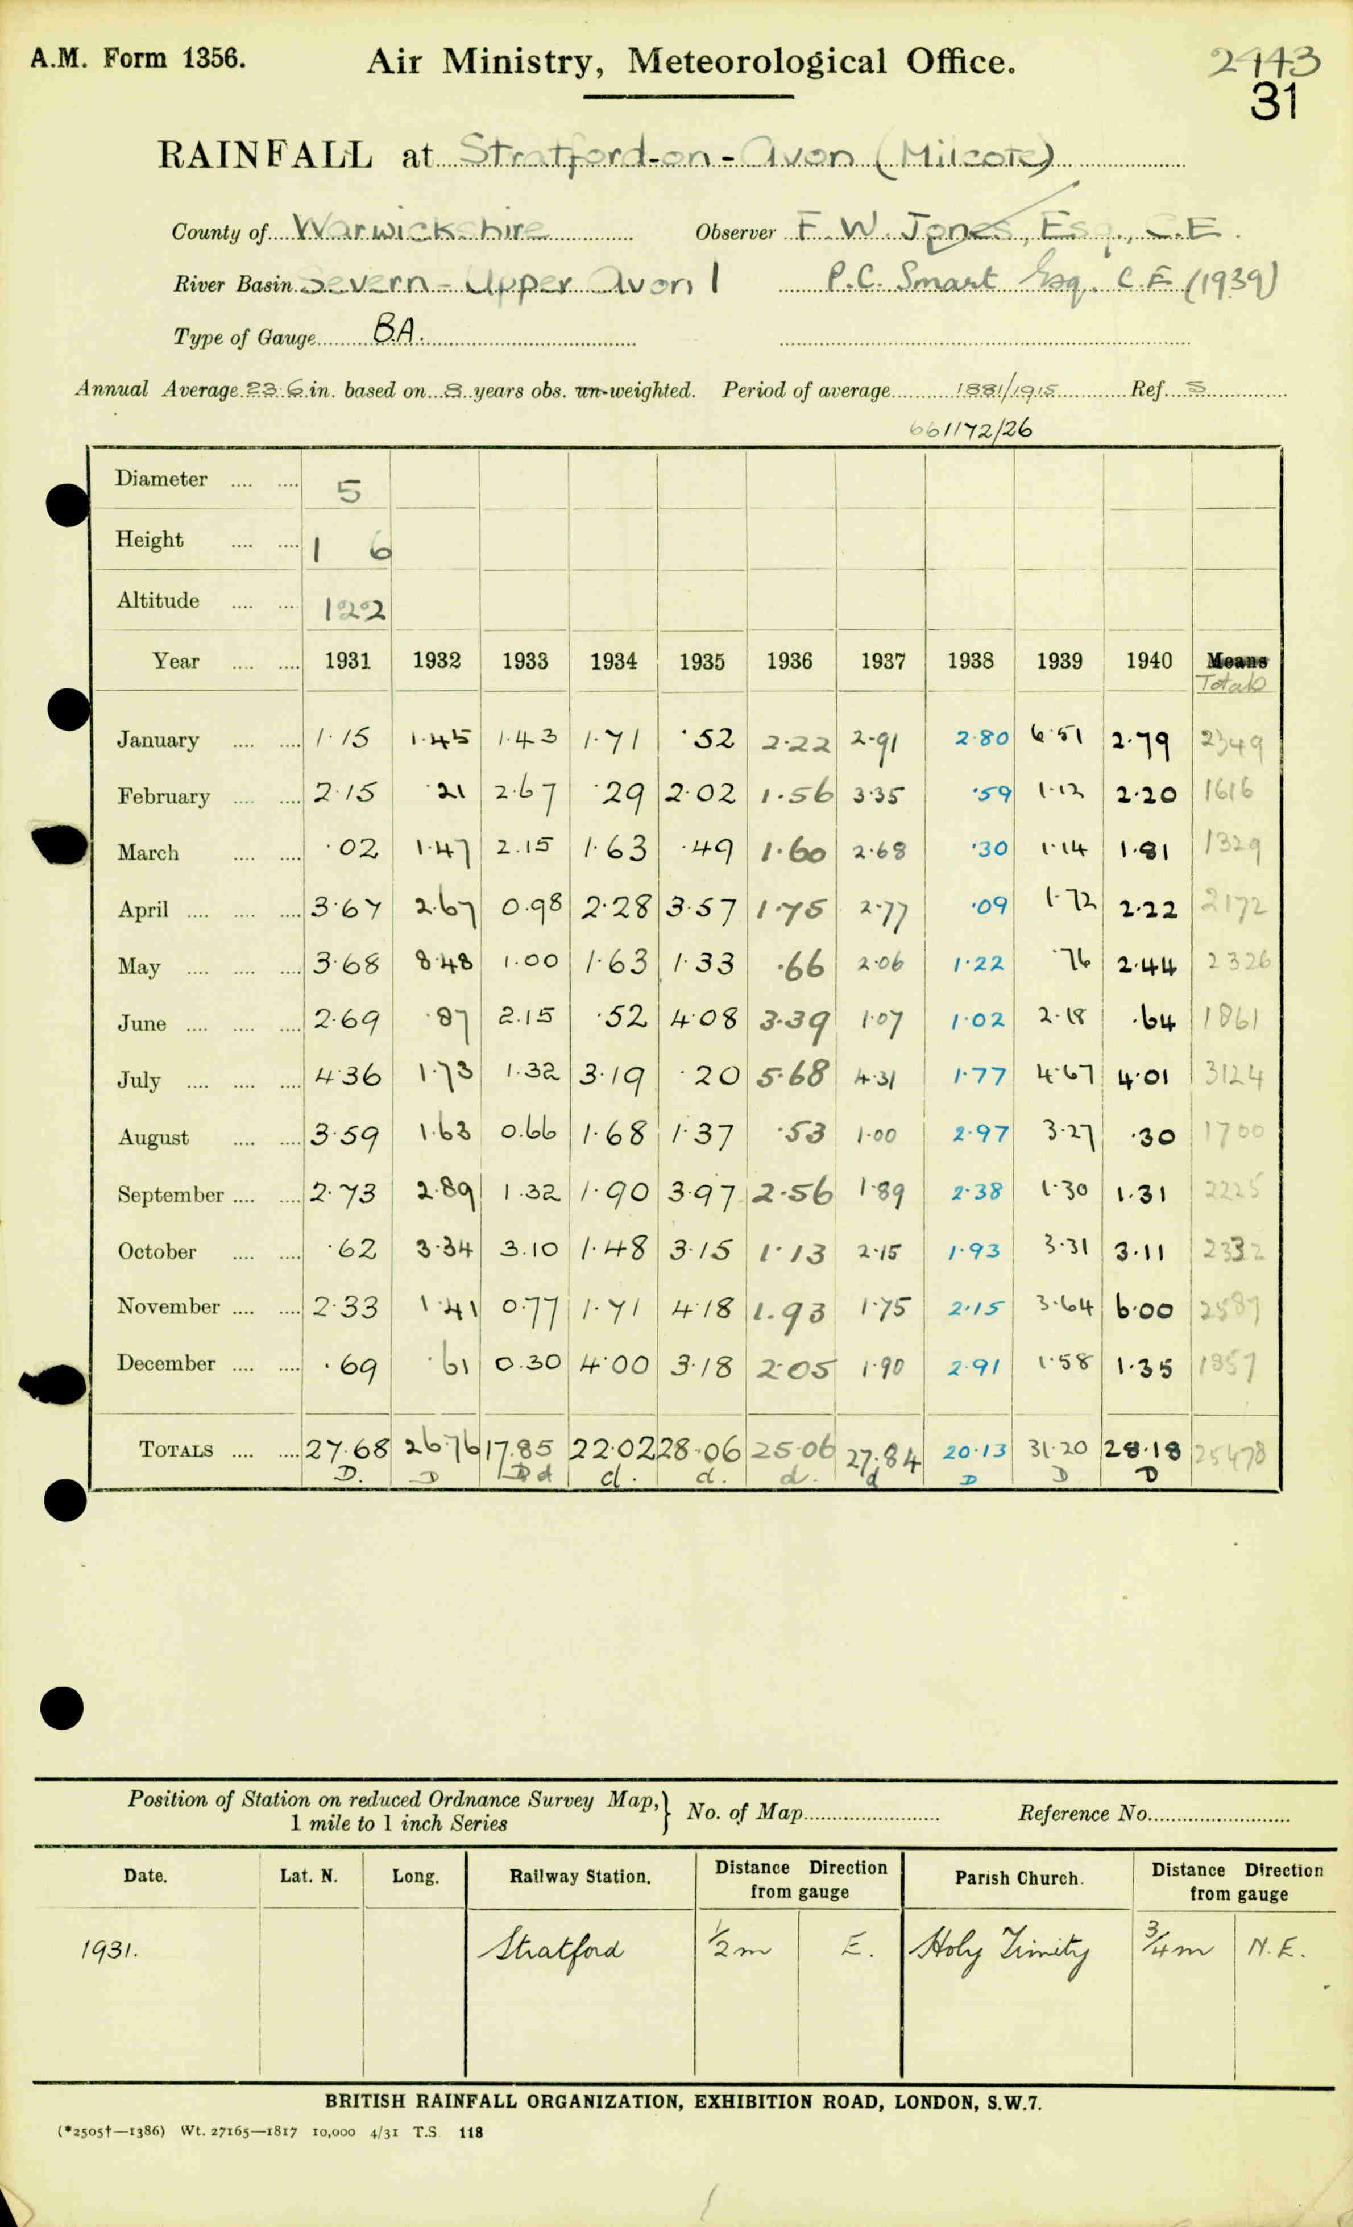 A.M. Form 1356. Air Ministry, Meteorological Office. 2443
31
RAINFALL at Stratford-on-Avon (Milcote)
County of Warwickshire Observer F. W. Jones, Esq., C.E.
River Basin Severn - Upper Avon 1 P.C. Smart Esq. C.E (1939)
Type of Gauge B.A.
Annual Average 23.6 in. based on 8 years obs. un-weighted. Period of average 1881/1915 Ref. S
661172/26
Diameter .... .... 5
Height .... .... 1 6
Altitude .... .... 122
Year .... .... 1931 1932 1933 1934 1935 1936 1937 1938 1939 1940 Means
Totals
January .... .... 1.15 1.45 1.43 1.71 .52 2.22 2.91 2.80 6.51 2.79 2349
February .... .... 2.15 .21 2.67 .29 2.02 1.56 3.35 .59 1.12 2.20 1616
March .... .... .02 1.47 2.15 1.63 .49 1.60 2.68 .30 1.14 1.81 1329
April .... .... .... 3.67 2.67 0.98 2.28 3.57 1.75 2.77 .09 1.72 2.22 2172
May .... .... .... 3.68 8.48 1.00 1.63 1.33 .66 2.06 1.22 .76 2.44 2326
June .... .... .... 2.69 .87 2.15 .52 4.08 3.39 1.07 1.02 2.18 .64 1861
July .... .... .... 4.36 1.73 1.32 3.19 .20 5.68 4.31 1.77 4.67 4.01 3124
August .... .... 3.59 1.63 0.66 1.68 1.37 .53 1.00 2.97 3.27 .30 1700
September .... .... 2.73 2.89 1.32 1.90 3.97 2.56 1.89 2.38 1.30 1.31 2225
October .... .... .62 3.34 3.10 1.48 3.15 1.13 2.15 1.93 3.31 3.11 2332
November .... .... 2.33 1.41 0.77 1.71 4.18 1.93 1.75 2.15 3.64 6.00 2587
December .... .... .69 .61 0.30 4.00 3.18 2.05 1.90 2.91 1.58 1.35 1857
TOTALS .... .... 27.68 26.76 17.85 22.02 28.06 25.06 27.84 20.13 31.20 28.18 25478
D. D D d d. d. d. d D D D
Position of Station on reduced Ordnance Survey Map, } No. of Map Reference No.
1 mile to 1 inch Series
Date. Lat. N. Long. Railway Station. Distance Direction from gauge Parish Church. Distance Direction from gauge
1931. Stratford 1/2 m E. Holy Trinity 3/4 m N.E.
BRITISH RAINFALL ORGANIZATION, EXHIBITION ROAD, LONDON, S.W.7.
(*2505†—1386) Wt. 27165—1817 10,000 4/31 T.S. 118